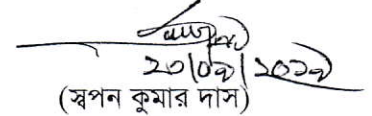 ২০/০৯/২০১৯
(স্বপন কুমার দাস)